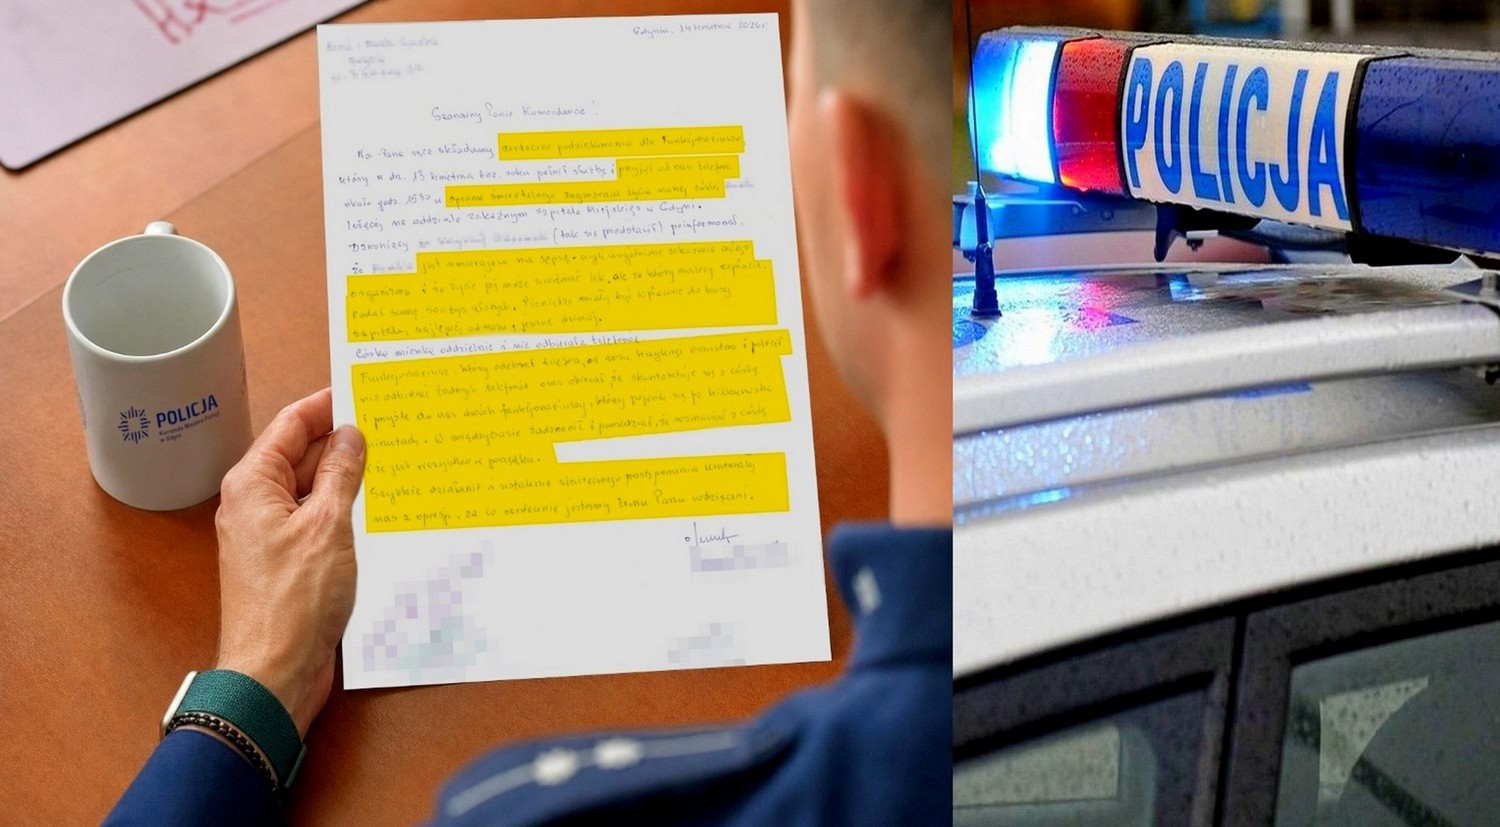 Gdynia, 14 kwietnia 2026 r
Szanowny Panie Komendancie!
Na Pana ręce składamy serdeczne podziękowania dla Funkcjonariusza
który w dn. 13 kwietnia bez. roku pełnił służbę i przyjął od nas telefon
około godz. 15³⁰ w sprawie śmiertelnego zagrożenia życia naszej córki
leżącej na oddziale zakaźnym szpitala Miejskiego w Gdyni.
Dzwoniący (tak się przedstawił) poinformował,
że jest umierająca na sepsę, czyli uogólnione zakażenie całego
organizmu i że życie jej może uratować lek, ale za który należy zapłacić.
Podał sumę 500 tys. złotych. Pieniądze miały być wpłacone do kasy
szpitala, najlepiej od razu, jeszcze dzisiaj.
Córka mieszka oddzielnie i nie odbierała telefonu.
Funkcjonariusz, który odebrał telefon, od razu oszustwo i polecił
nie odbierać żadnych telefonów oraz obiecał że skontaktuje się z córką
i przyśle do nas dwóch funkcjonariuszy, którzy pojawili się po kilkunastu
minutach. W międzyczasie zadzwonił i powiedział, że rozmawiał z córką
i że jest wszystko w porządku.
Szybkie działanie i ustalenie skutecznego postępowania uratowały
nas z opresji, za co serdecznie jesteśmy Panu wdzięczni.
POLICJA
Komenda Miejska Policji
w Gdyni
POLICJA